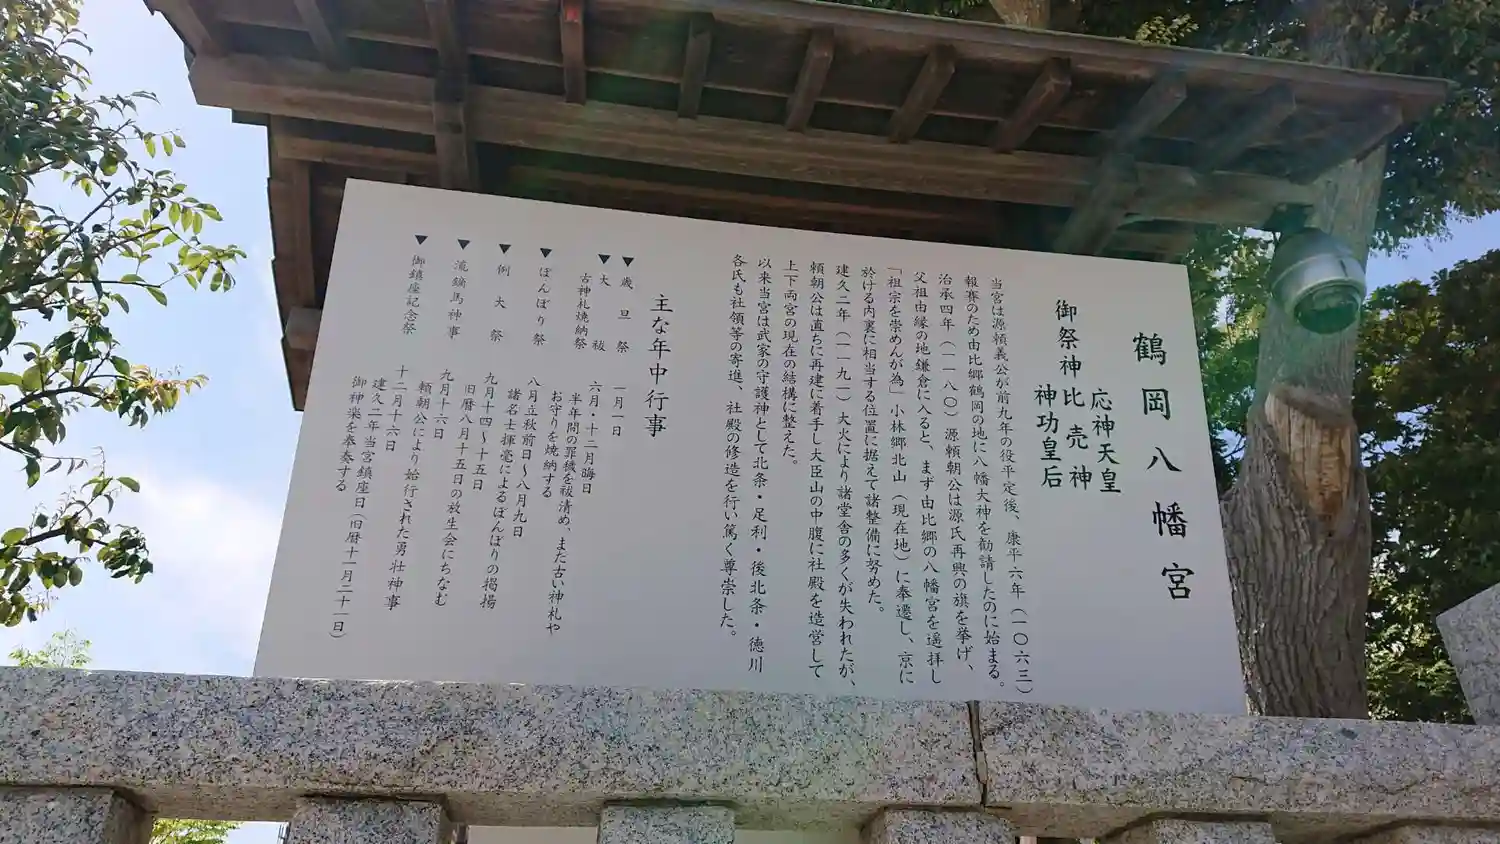 鶴岡八幡宮
御祭神
応神天皇
比売神
神功皇后
当宮は源頼義公が前九年の役平定後、康平六年(一〇六三)
報賽のため由比郷鶴岡の地に八幡大神を勧請したのに始まる。
治承四年(一一八〇)源頼朝公は源氏再興の旗を挙げ、
父祖由縁の地鎌倉に入ると、まず由比郷の八幡宮を遥拝し
「祖宗を崇めんが為」小林郷北山(現在地)に奉遷し、京に
於ける内裏に相当する位置に据えて諸整備に努めた。
建久二年(一一九一)大火により諸堂舎の多くが失われたが、
頼朝公は直ちに再建に着手し大臣山の中腹に社殿を造営して
上下両宮の現在の結構に整えた。
以来当宮は武家の守護神として北条・足利・後北条・徳川
各氏も社領等の寄進、社殿の修造を行い篤く尊崇した。
主な年中行事
▼歳旦祭 一月一日
▼大祓 六月・十二月晦日
古神札焼納祭 半年間の罪穢を祓清め、また古い神札や
お守りを焼納する
▼ぼんぼり祭 八月立秋前日〜八月九日
諸名士揮毫によるぼんぼりの掲揚
▼例大祭 九月十四〜十五日
旧暦八月十五日の放生会にちなむ
▼流鏑馬神事 九月十六日
頼朝公により始行された勇壮神事
▼御鎮座記念祭 十二月十六日
建久二年当宮鎮座日(旧暦十一月二十一日)
御神楽を奉奏する